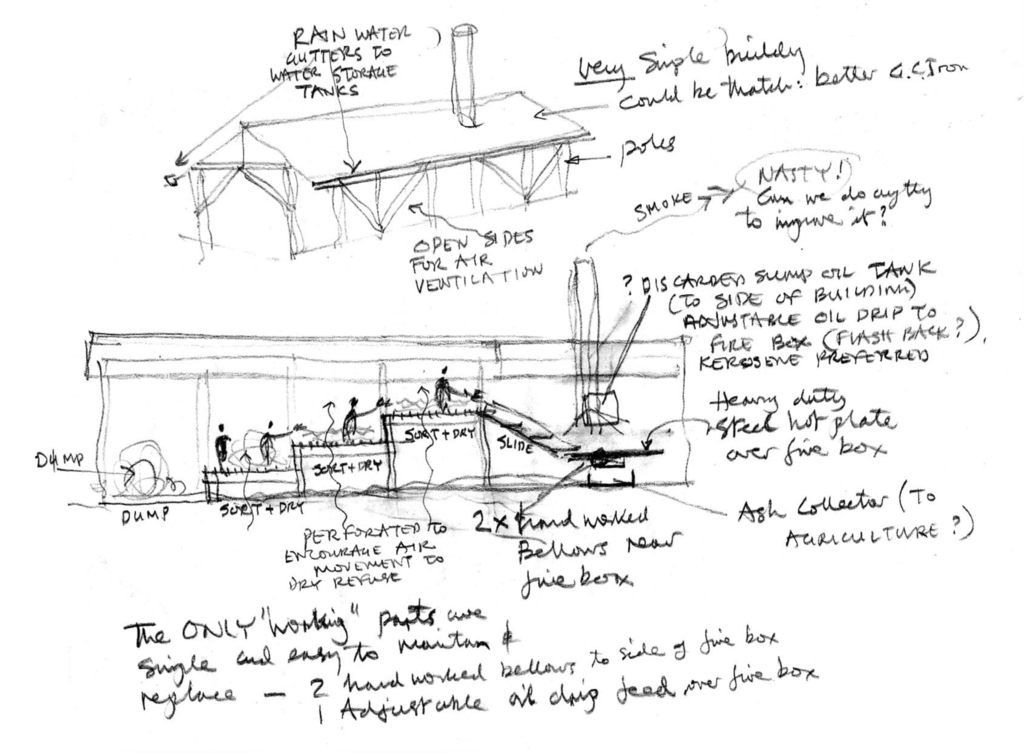 RAIN WATER
GUTTERS TO
WATER STORAGE
TANKS
very simple building
could be thatch: better G.C Iron
poles
OPEN SIDES
FOR AIR
VENTILATION
SMOKE
NASTY!
Can we do anything
to improve it?
? DISCARDED SUMP OIL TANK
(TO SIDE OF BUILDING)
ADJUSTABLE OIL DRIP TO
FIRE BOX (FLASH BACK?),
KEROSENE PREFERRED
Heavy duty
Steel hot plate
over fire box
DUMP
DUMP
SORT + DRY
SORT + DRY
SORT + DRY
SLIDE
PERFORATED TO
ENCOURAGE AIR
MOVEMENT TO
DRY REFUSE
2 x hand worked
Bellows near
fire box
Ash Collector (TO
AGRICULTURE?)
The ONLY "working" parts are
simple and easy to maintain &
replace – 2 hand worked bellows to side of fire box
1 Adjustable oil drip feed over fire box